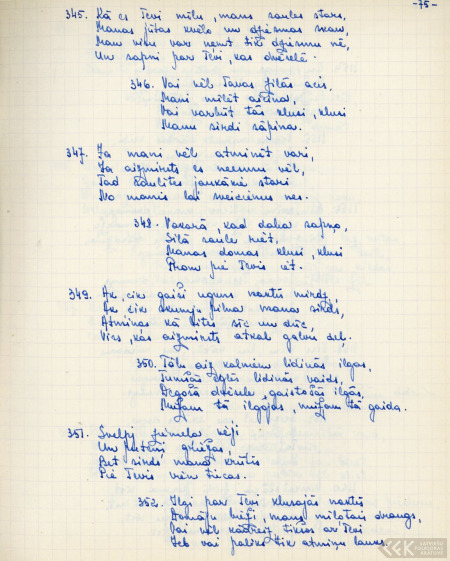 -75-
345. Kā es Tevi mīlu, mans saules stars,
Manas jūtas kvēlo un dziesmas skan,
Man visu var ņemt tikai dziesmu nē,
Un sapni par Tevi, kas dvēselē.
346. Vai vēl Tavas zilās acis,
Mani mīlēt aicina,
Vai varbūt tās klusi, klusi
Manu sirdi sāpina.
347. Ja mani vēl atminēt vari,
Ja aizmirsts es neesmu vēl,
Tad saulītes jaukākie stari
No manis lai sveicienus nes.
348. Vakarā, kad daba sapņo,
Silā saule riet,
Manas domas klusi, klusi
Prom pie Tevis iet.
349. Ak, cik gaiši uguns naktīs mirdz,
Ak cik skumju pilna mana sirds,
Atmiņas kā bites sīc un dūc,
Viss, kas aizmirsts atkal galvu deļ.
350. Tālu aiz kalniem līdinās ilgas,
Tumšās egles līdinās vaids,
Degošā dvēsele, gaistošās ilgās,
Mūžam tā ilgojas, mūžam tā gaida.
351. Svelpj ziemeļa vēji
Un puteņi griežas,
Bet sirds manā krūtīs
Pie Tevis vien tiecas.
352. Ilgi par Tevi klusajās naktīs
Domāju bieži, mans mīļotais draugs,
Vai vēl kādreiz tiksos ar Tevi
Jeb vai paliks tik atmiņu lauks.
LATVIEŠU FOLKLORAS KRĀTUVE